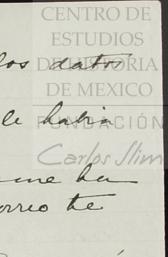 CENTRO DE
ESTUDIOS
DE HISTORIA
DE MEXICO
FUNDACIÓN
Carlos Slim
los datos
le habia
me ha
correo te